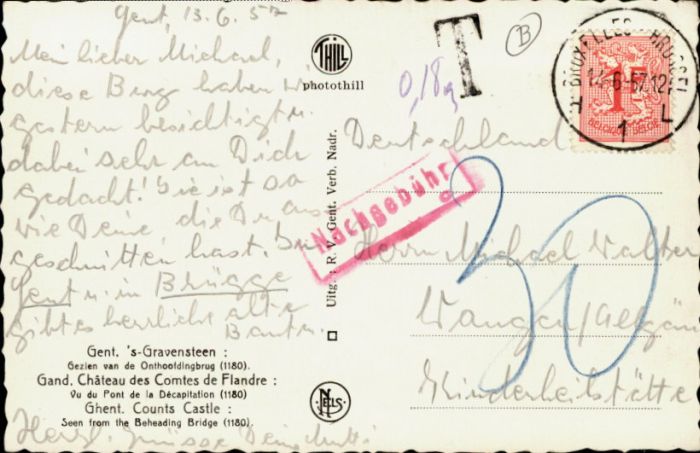 Gent, 13.6.57
Mein lieber Michael,
diese Burg haben wir
gestern besichtigt u.
dabei sehr an Dich
gedacht! Sie ist so
wie Deine die Du aus
geschnitten hast. In
Gent u. in Brügge
gibt es herrliche alte
Bauten.
Gent. 's-Gravensteen :
Gezien van de Onthoofdingbrug (1180).
Gand. Château des Comtes de Flandre :
Vu du Pont de la Décapitation (1180)
Ghent. Counts Castle :
Seen from the Beheading Bridge (1180).
Herzl. Grüsse Deine Mutti
THILL
photothill
Uitg. : R. V. Gent. Verb. Nadr.
NELS
T
B
0,18
BRUXELLES BRUSSEL
14-6-57 12
1 L
1F
Nachgebühr
30
Deutschland
Herrn Michael Walter
Wangen/Allgäu
Kinderheilstätte